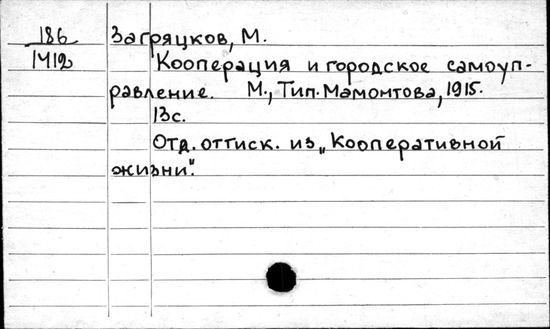 186 Загряцков, М.
1412 Кооперация и городское самоуп-
равление. М., Тип. Мамонтова, 1915.
13с.
Отд. оттиск. из „Кооперативной
жизни".